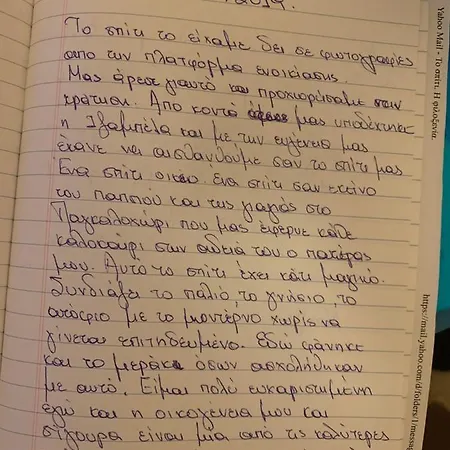 2019.
Το σπίτι το είχαμε δει σε φωτογραφίες
απο την πλατφόρμα ενοικίασης.
Μας άρεσε γιαυτό και προχωρήσαμε στην
κράτηση. Απο κοντά μας υποδέχτηκε
η Ιζαμπέλα και με την ευγένεια μας
έκανε να αισθανθούμε σαν το σπίτι μας
Ένα σπίτι ένα σπίτι σαν εκείνο
του παππού και της γιαγιάς στο
Παγκαλοχώρι που μας έφερνε κάθε
καλοκαίρι στην άδειά του ο πατέρας
μου. Αυτό το σπίτι έχει κάτι μαγικό.
Συνδιάζει το παλιό, το γνήσιο, το
με το μοντέρνο χωρίς να
γίνεται επιτηδευμένο. Εδώ φάνηκε
και το μεράκι όσων ασχολήθηκαν
με αυτό. Είμαι πολύ ευχαριστημένη
εγώ και η οικογένεια μου και
σίγουρα είναι μία από τις καλύτερες
Yahoo Mail - Το σπίτι. Η φιλοξενία.
https://mail.yahoo.com/d/folders/1/messag